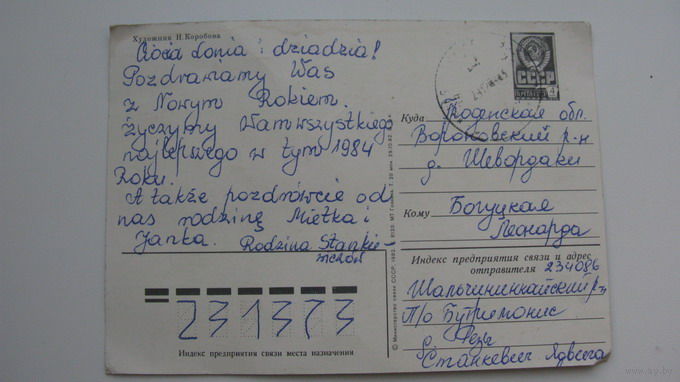 Художник Н. Коробова
Ciocia Lonia i dziadzia!
Pozdrawiamy Was
z Nowym Rokiem.
Życzymy Wam wszystkiego
najlepszego w tym 1984
Roku.
A także pozdrówcie od
nas rodzinę Mietka i
Janka. Rodzina Stankie-
wiczów
231373
Индекс предприятия связи места назначения
© Министерство связи СССР, 1983
СССР
ПОЧТА
4
Куда Гродненская обл.
Вороновский р-н
д. Шевордаки
Кому Богуцкая
Леонарда
Индекс предприятия связи и адрес
отправителя 234086
Шальчининкайский р-н
П/о Бутримонис
Станкевич Ядвига